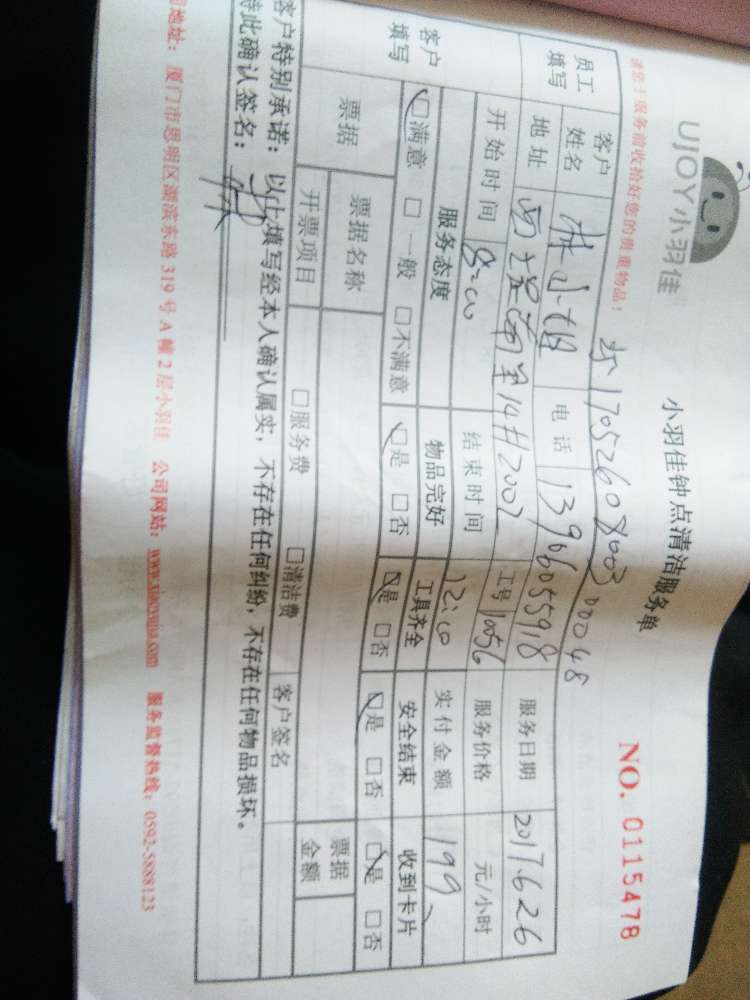 UJOY小羽佳
小羽佳钟点清洁服务单
NO. 0115478
请您于服务前收拾好您的贵重物品！
17052608003 00048
员工填写 客户姓名 林小姐 电话 13906055918 服务日期 2017.6.26
地址 14#2002 工号 10056 服务价格 元/小时
开始时间 8:00 结束时间 12:00 实付金额 199
客户填写 服务态度 物品完好 工具齐全 安全结束 收到卡片
☑满意 □一般 □不满意 ☑是 □否 ☑是 □否 ☑是 □否 ☑是 □否
票据 票据名称 票据金额
开票项目 □服务费 □清洁费 客户签名
客户特别承诺：以上填写经本人确认属实，不存在任何纠纷，不存在任何物品损坏。
特此确认签名：
司地址：厦门市思明区湖滨东路319号A幢2层小羽佳 公司网站：www.xiaoyujia.com 服务监督热线：0592-5888123